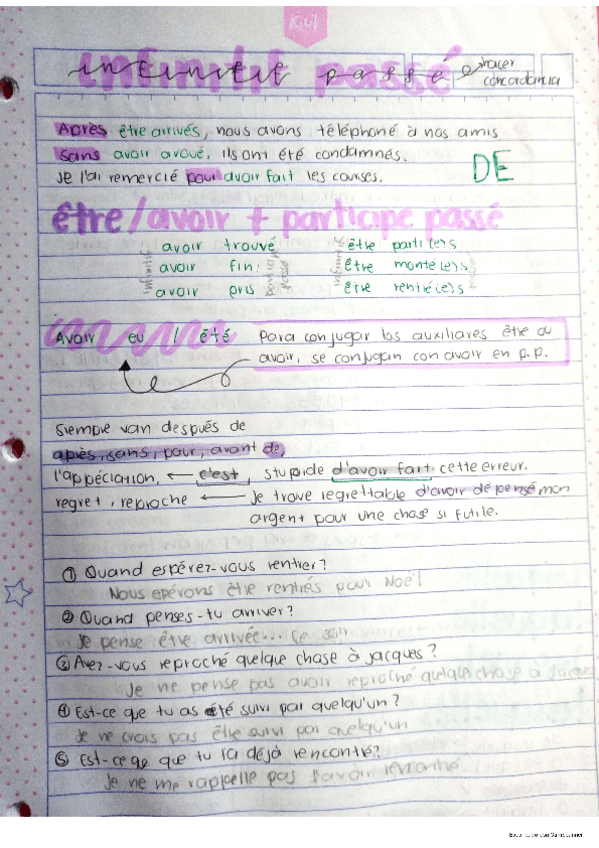 Kiut
infinitif passé hacer
concordancia
Après être arrivés, nous avons téléphoné à nos amis
sans avoir avoué, ils ont été condamnés.
Je l'ai remercié pour avoir fait les courses.
DE
être/avoir + participe passé
avoir trouvé être parti(e)s
avoir fini être monté(e)s
avoir pris être rentré(e)s
infinitif
participe passé
infinitif
Avoir eu / été Para conjugar los auxiliares être ou
avoir, se conjugan con avoir en p.p.
Siempre van después de
après, sans, pour, avant de,
l'appéciation, ← c'est, stupide d'avoir fait cette erreur.
regret, reproche ← Je trove regrettable d'avoir dépensé mon
argent pour une chase si futile.
① Quand espérez-vous rentrer?
Nous epérons être rentrés pour Noël
② Quand penses-tu arriver?
Je pense être arrivée... ce soir
③ Avez-vous reproché quelque chase à Jacques?
Je ne pense pas avoir reproché quelque chase à Jacques
④ Est-ce que tu as été suivi par quelqu'un?
Je ne crois pas être suivi par quelqu'un
⑤ Est-ce que tu la déjà rencontré?
Je ne me rappelle pas l'avoir rencontré.